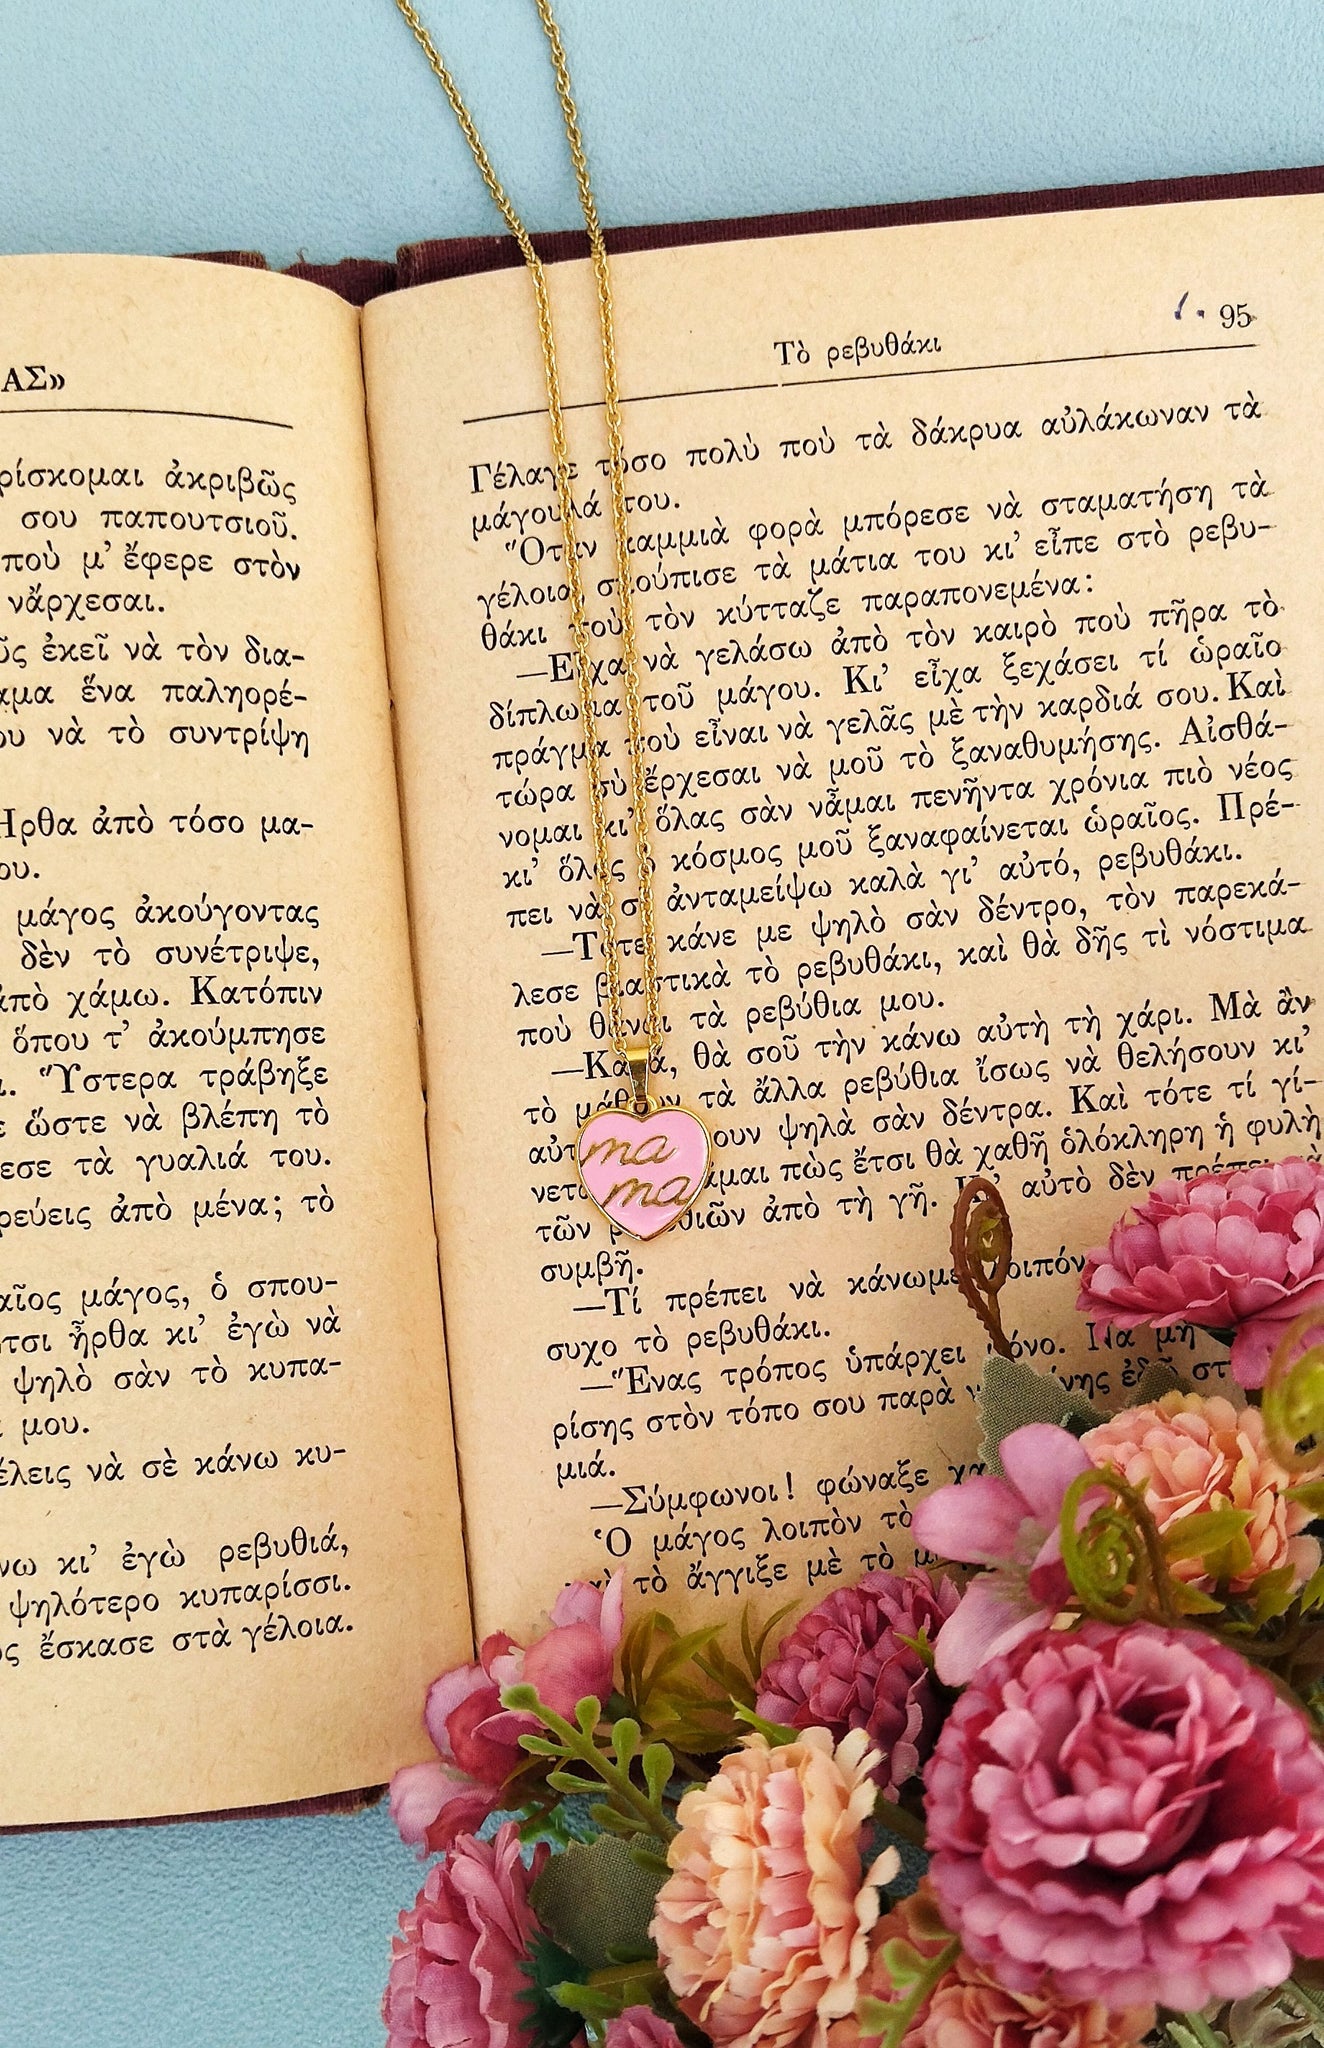 ΑΣ»
ρίσκομαι ἀκριβῶς
σου παπουτσιοῦ.
ποὺ μ' ἔφερε στὸν
νἄρχεσαι.
ἐκεῖ νὰ τὸν δια-
ἕνα παληορέ-
νὰ τὸ συντρίψη
Ἦρθα ἀπὸ τόσο μα-
ου.
μάγος ἀκούγοντας
δὲν τὸ συνέτριψε,
ἀπὸ χάμω. Κατόπιν
ὅπου τ' ἀκούμπησε
Ὕστερα τράβηξε
ὥστε νὰ βλέπη τὸ
εσε τὰ γυαλιά του.
ρεύεις ἀπὸ μένα; τὸ
αῖος μάγος, ὁ σπου-
τσι ἦρθα κι' ἐγὼ νὰ
ψηλὸ σὰν τὸ κυπα-
μου.
έλεις νὰ σὲ κάνω κυ-
νω κι' ἐγὼ ρεβυθιά,
ψηλότερο κυπαρίσσι.
ς ἔσκασε στὰ γέλοια.
95
Τὸ ρεβυθάκι
Γέλαγε τόσο πολὺ ποὺ τὰ δάκρυα αὐλάκωναν τὰ
μάγουλά του.
Ὅταν καμμιὰ φορὰ μπόρεσε νὰ σταματήση τὰ
γέλοια, σκούπισε τὰ μάτια του κι' εἶπε στὸ ρεβυ-
θάκι ποὺ τὸν κύτταζε παραπονεμένα:
—Εἶχα νὰ γελάσω ἀπὸ τὸν καιρὸ ποὺ πῆρα τὸ
δίπλωμα τοῦ μάγου. Κι' εἶχα ξεχάσει τί ὡραῖο
πράγμα ποὺ εἶναι νὰ γελᾶς μὲ τὴν καρδιά σου. Καὶ
τώρα σὺ ἔρχεσαι νὰ μοῦ τὸ ξαναθυμήσης. Αἰσθά-
νομαι κι' ὅλας σὰν νἆμαι πενῆντα χρόνια πιὸ νέος
κι' ὅλος ὁ κόσμος μοῦ ξαναφαίνεται ὡραῖος. Πρέ-
πει νὰ σ' ἀνταμείψω καλὰ γι' αὐτό, ρεβυθάκι.
—Τότε κάνε με ψηλὸ σὰν δέντρο, τὸν παρεκά-
λεσε βιαστικὰ τὸ ρεβυθάκι, καὶ θὰ δῆς τὶ νόστιμα
ποὺ θἆναι τὰ ρεβύθια μου.
—Καλά, θὰ σοῦ τὴν κάνω αὐτὴ τὴ χάρι. Μὰ ἂν
τὸ μάθουν τὰ ἄλλα ρεβύθια ἴσως νὰ θελήσουν κι'
αὐτ ουν ψηλὰ σὰν δέντρα. Καὶ τότε τί γί-
νετα άμαι πὼς ἔτσι θὰ χαθῆ ὁλόκληρη ἡ φυλὴ
τῶν ρεβυθιῶν ἀπὸ τὴ γῆ. Κι' αὐτὸ δὲν πρέπει νὰ
συμβῆ.
—Τί πρέπει νὰ κάνωμε λοιπόν
συχο τὸ ρεβυθάκι.
—Ἕνας τρόπος ὑπάρχει μόνο. Νὰ μὴ
ρίσης στὸν τόπο σου παρὰ ἐδῶ
μιά.
—Σύμφωνοι! φώναξε χα
Ὁ μάγος λοιπὸν τὸ
καὶ τὸ ἄγγιξε μὲ τὸ
ma
ma